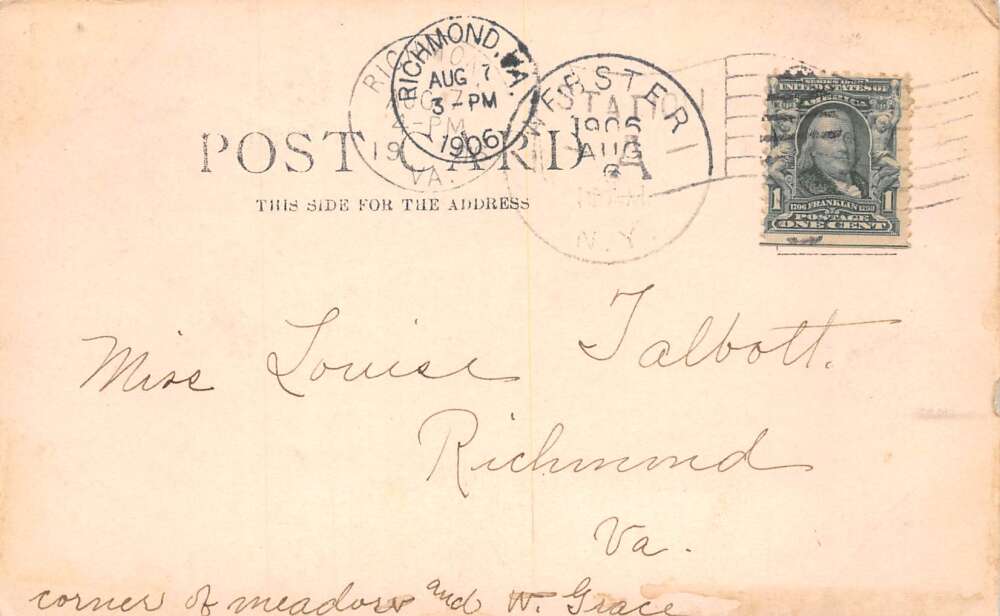 RICHMOND, VA.
AUG 7
3-PM
1906
WEBSTER
STATION
1906
AUG
6
N.Y.
SERIES 1902
UNITED STATES OF
AMERICA
1 1
1706 FRANKLIN 1790
POSTAGE
ONE CENT
POST CARD
THIS SIDE FOR THE ADDRESS
VA.
Miss Louise Talbott.
Richmond
Va.
corner of meadow and W. Grace